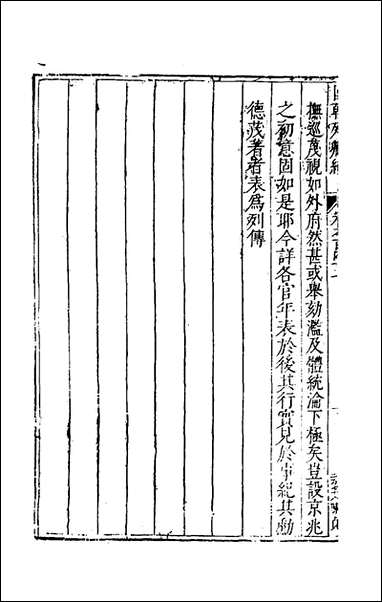 撫巡茂視如外府然甚或舉劾濫及體統淪下極矣豈設京兆
之初意固如是耶今詳各官年表於後其行實見於事紀其勳
德茂著者表爲列傳